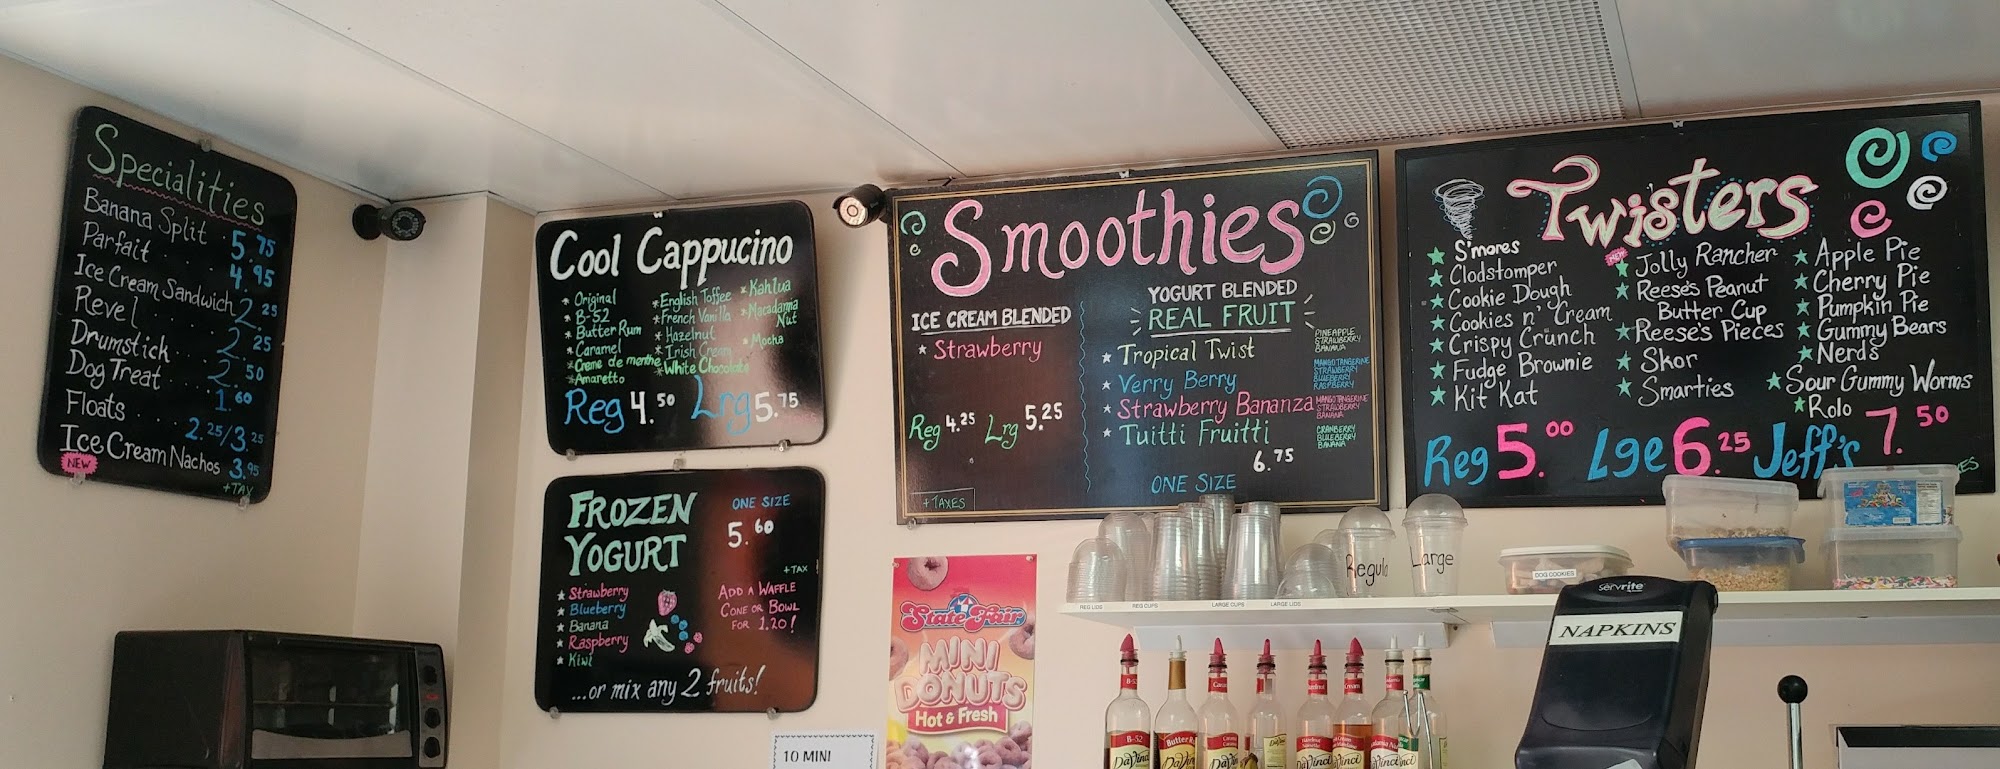 Specialities
Banana Split 5.75
Parfait . . . . 4.95
Ice Cream Sandwich 2.25
Revel . . . . . . 2.25
Drumstick . . . 2.50
Dog Treat . . . . 1.60
Floats . . . 2.25/3.25
Ice Cream Nachos 3.95
NEW
+TAX
Cool Cappucino
* Original
* B-52
* Butter Rum
* Caramel
* Creme de menthe
* Amaretto
* English Toffee
* French Vanilla
* Hazelnut
* Irish Cream
* White Chocolate
* Kahlua
* Macadamia
Nut
* Mocha
Reg 4.50 Lrg 5.75
FROZEN
YOGURT
ONE SIZE
5.60
+TAX
★ Strawberry
★ Blueberry
★ Banana
★ Raspberry
★ Kiwi
ADD A WAFFLE
CONE OR BOWL
FOR 1.20!
...or mix any 2 fruits!
Smoothies
ICE CREAM BLENDED
★ Strawberry
Reg 4.25 Lrg 5.25
+TAXES
YOGURT BLENDED
REAL FRUIT
★ Tropical Twist
PINEAPPLE
STRAWBERRY
BANANA
★ Verry Berry
MANGO TANGERINE
STRAWBERRY
BLUEBERRY
RASPBERRY
★ Strawberry Bananza
MANGO TANGERINE
STRAWBERRY
BANANA
★ Tuitti Fruitti
CRANBERRY
BLUEBERRY
BANANA
6.75
ONE SIZE
Twisters
★ S'mores
★ Clodstomper
★ Cookie Dough
★ Cookies n' Cream
★ Crispy Crunch
★ Fudge Brownie
★ Kit Kat
NEW
★ Jolly Rancher
★ Reese's Peanut
Butter Cup
★ Reese's Pieces
★ Skor
★ Smarties
★ Apple Pie
★ Cherry Pie
★ Pumpkin Pie
★ Gummy Bears
★ Nerds
★ Sour Gummy Worms
★ Rolo
Reg 5.00 Lge 6.25 Jeff's 7.50
State Fair
MINI
DONUTS
Hot & Fresh
10 MINI
Regula
Large
REG LIDS
REG CUPS
LARGE CUPS
LARGE LIDS
DOG COOKIES
servrite
NAPKINS
B-52
DaVinci
Butter R
DaVin
DaVinci